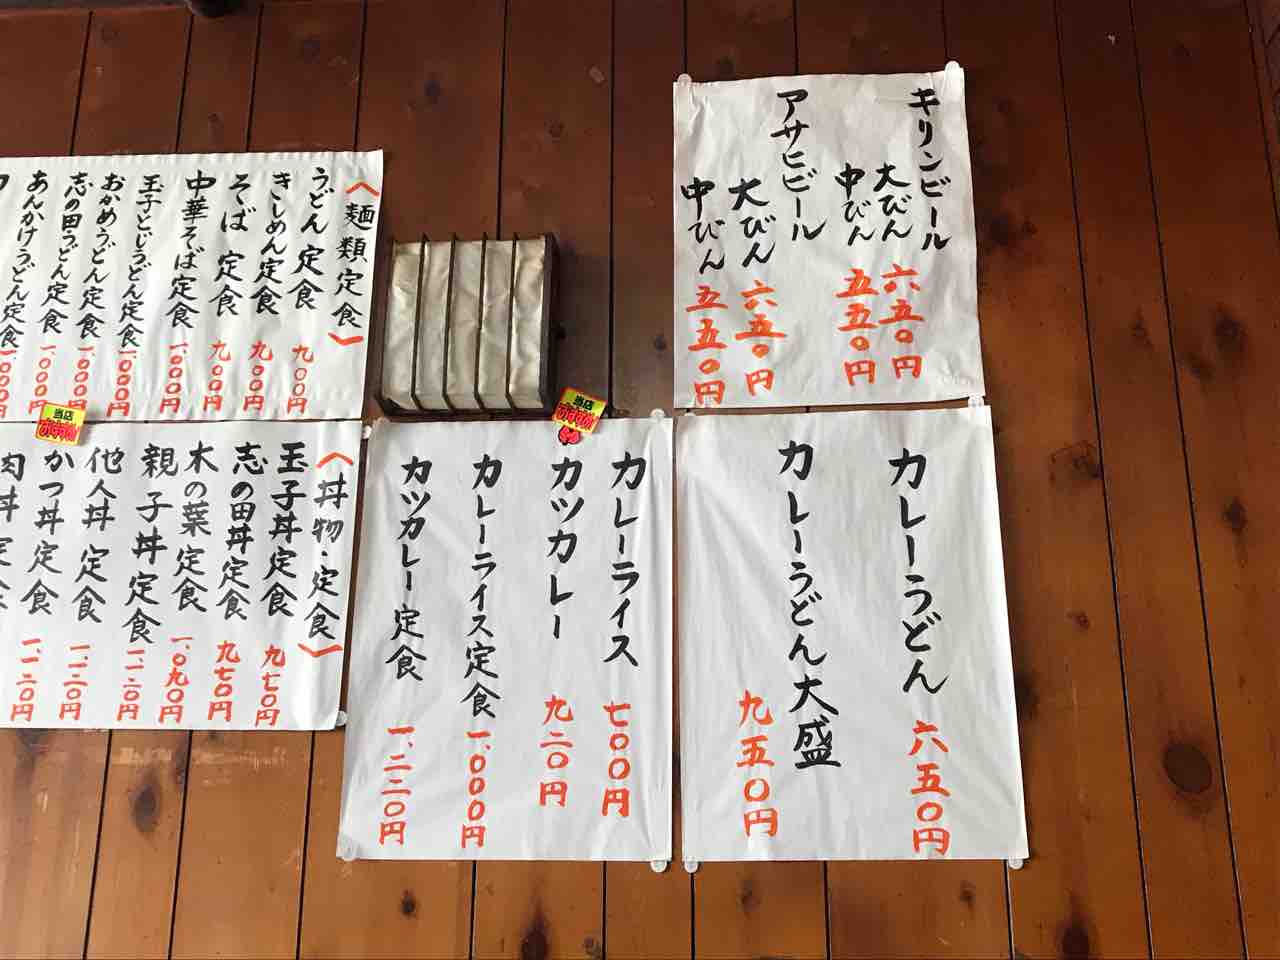 キリンビール
大びん 六五〇円
中びん 五五〇円
アサヒビール
大びん 六五〇円
中びん 五五〇円
〈麺類定食〉
うどん定食 九〇〇円
きしめん定食 九〇〇円
そば定食 九〇〇円
中華そば定食 一、〇〇〇円
玉子とじうどん定食 一、〇〇〇円
おかめうどん定食 一、〇〇〇円
志の田うどん定食 一、〇〇〇円
あんかけうどん定食 一、〇〇〇円
カレーうどん 六五〇円
カレーうどん大盛 九五〇円
カレーライス 七〇〇円
当店
おすすめ
カツカレー 九二〇円
カレーライス定食 一、〇〇〇円
カツカレー定食 一、二二〇円
〈丼物・定食〉
玉子丼定食 九七〇円
志の田丼定食 九七〇円
木の葉定食 一、〇九〇円
親子丼定食 一、一二〇円
他人丼定食 一、一二〇円
当店
おすすめ
かつ丼定食 一、一二〇円
肉丼定食